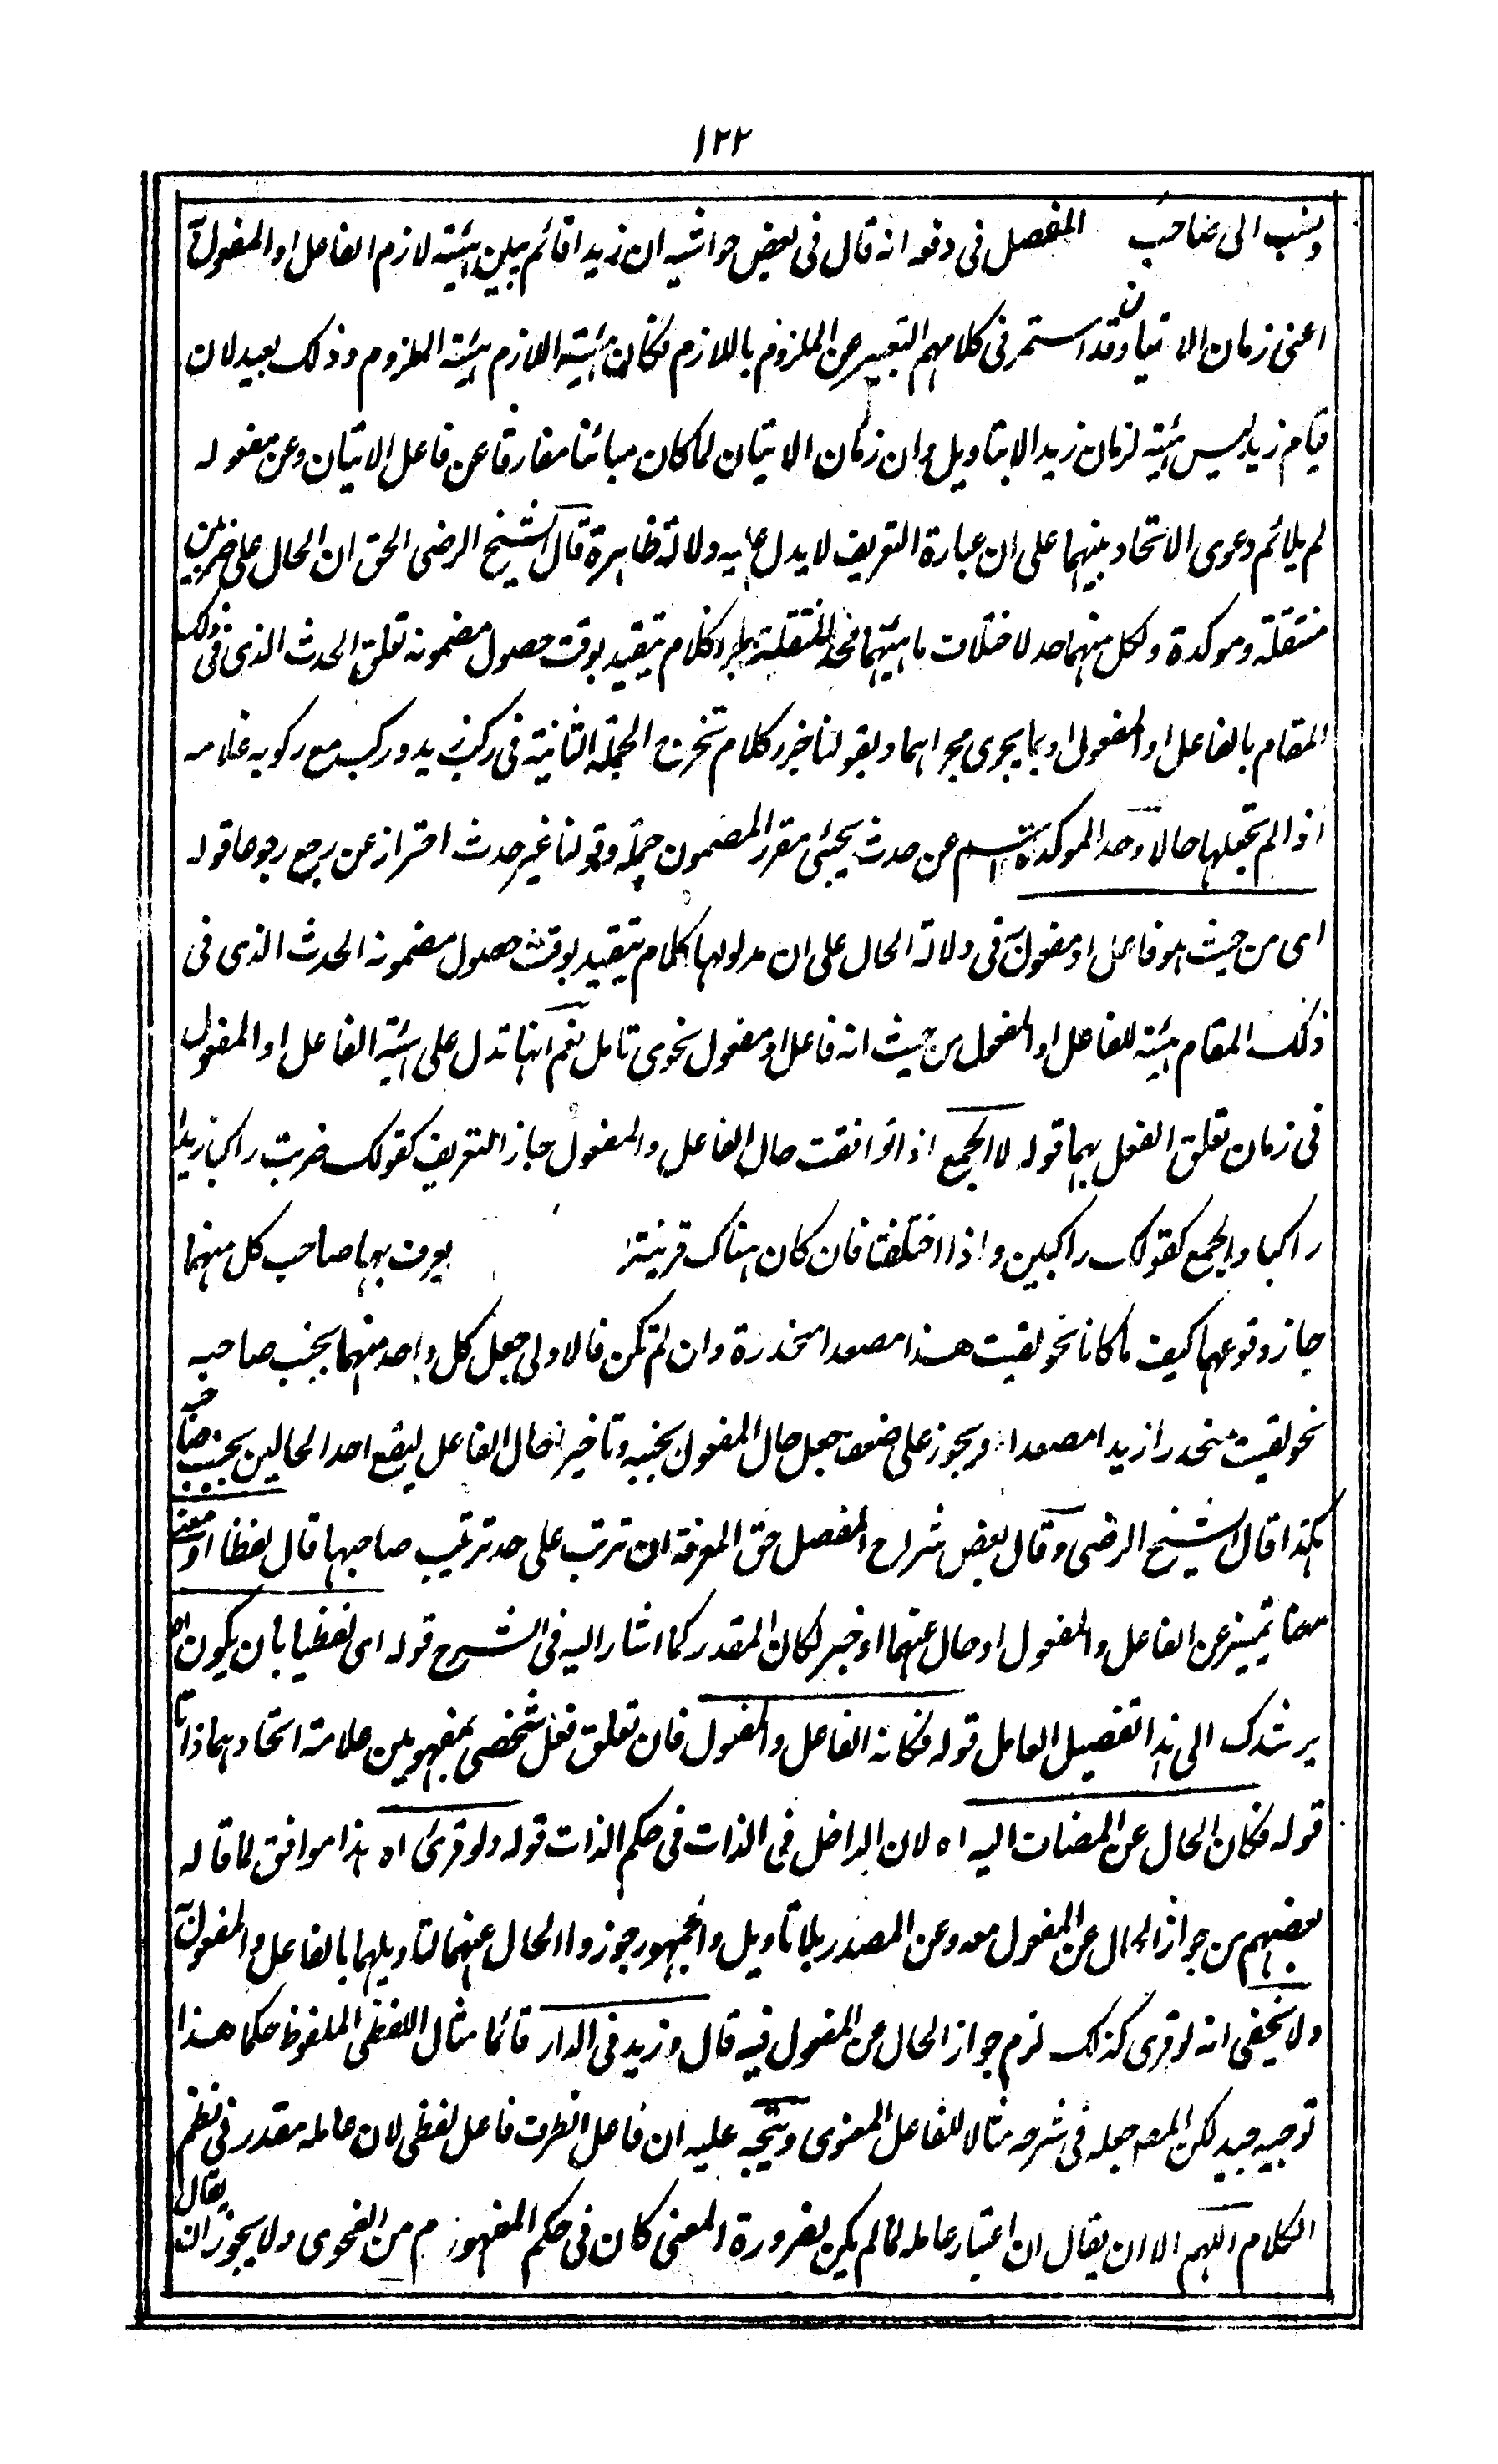 ١٢٢
وينسب الى صاحب المفصل فى دفعه انه قال فى بعض حواشيه ان زيدا قائم يبين هيئة لازم الفاعل او المفعول به
اعنى زمان الاتيان وقد استمر فى كلامهم التعبير عن الملزوم باللازم فكان هيئة اللازم هيئة الملزوم وذلك بعيد لان
قيام زيد ليس هيئة لزمان زيد الا بتاويل وان زمان الاتيان لما كان مبائنا مفارقا عن فاعل الاتيان وعن مفعوله
لم يلائم دعوى الاتحاد بينهما على ان عبارة التعريف لا يدل عليه دلالة ظاهرة قال الشيخ الرضى الحق ان الحال على ضربين
منتقلة وموكدة ولكل منهما حد لاختلاف ماهيتهما فحد المنتقلة جزء كلام يتقيد بوقت حصول مضمونه تعلق الحدث الذى فى ذلك
المقام بالفاعل او المفعول او بما يجرى مجراهما وبقولنا جزء كلام تخرج الجملة الثانية فى ركب زيد وركب مع ركوبه غلامه
اذا لم تجعلها حالا وحد الموكدة اسم عن حدث يجئ مقررا لمضمون جملة وقولنا غير حدث احتراز عن رجع رجوعا قوله
اى من حيث هو فاعل او مفعول به فى دلالة الحال على ان مدلولها كلام يتقيد بوقت حصول مضمونه الحدث الذى فى
ذلك المقام هيئة للفاعل او المفعول من حيث انه فاعل او مفعول نحوى تامل نعم انها تدل على هيئة الفاعل او المفعول
فى زمان تعلق الفعل بهما قوله لا الجمع اذا توافقت حال الفاعل والمفعول جاز التفريق كقولك ضربت راكبا زيدا
راكبا والجمع كقولك راكبين واذا اختلفتا فان كان هناك قرينة يعرف بها صاحب كل منهما
جاز وقوعهما كيف ما كانا نحو لقيت هندا مصعدا منحدرة وان لم تكن فالاولى جعل كل واحد منهما بجنب صاحبه
نحو لقيت منحدرا زيدا مصعدا ويجوز على ضعف جعل حال المفعول بجنبه وتاخير حال الفاعل ليقع احد الحالين بجنب صاحبه
هكذا قال الشيخ الرضى وقال بعض شراح المفصل حق المعرفة ان ترتب على حد ترتيب صاحبها قال لفظا او معنى
تميز عن الفاعل والمفعول او حال عنهما او خبر لكان المقدر كما اشار اليه فى الشرح قوله اى لفظيا بان يكون اه
يرشدك الى هذا تفصيل العامل قوله فكانه الفاعل والمفعول فان تعلق فعل شخصى بمفهومين علامة اتحادهما ذاتا
قوله فكان الحال عن المضاف اليه اه لان الداخل فى الذات فى حكم الذات قوله ولو قرئ اه هذا موافق لما قاله
بعضهم من جواز الحال عن المفعول معه وعن المصدر بلا تاويل والجمهور جوزوا الحال عنهما لتاويلهما بالفاعل والمفعول به
ولا يخفى انه لو قرى كذلك لزم جواز الحال عن المفعول فيه قال وزيد فى الدار قائما مثال اللفظى الملفوظ حكما هذا
توجيه جيد لكن المصـ جعله فى شرحه مثالا للفاعل المعنوى ويتجه عليه ان فاعل الظرف فاعل لفظى لان عامله مقدر فى نظم
الكلام اللهم الا ان يقال ان اعتبار عامله لما لم يكن لضرورة المعنى كان فى حكم المفهوم من الفحوى ولا يجوز ان يقال